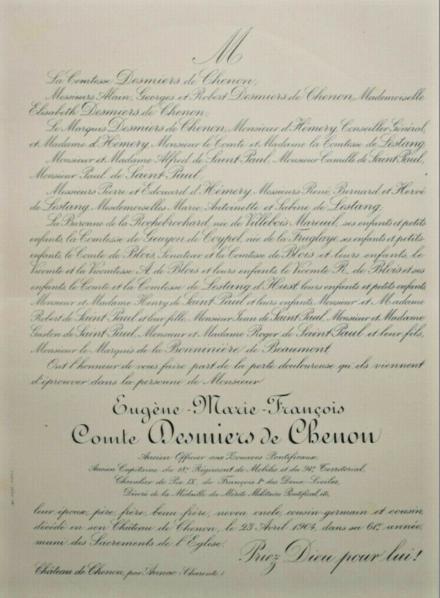 M
La Comtesse Desmiers de Chenon,
Messieurs Alain, Georges et Robert Desmiers de Chenon, Mademoiselle
Elisabeth Desmiers de Chenon,
Le Marquis Desmiers de Chenon, Monsieur d'Hémery, Conseiller Général,
et Madame d'Hémery, Monsieur le Comte et Madame la Comtesse de Lestang,
Monsieur et Madame Alfred de Saint Paul, Monsieur Camille de Saint Paul,
Monsieur Paul de Saint Paul,
Messieurs Pierre et Edouard d'Hémery, Messieurs René, Bernard et Hervé
de Lestang, Mesdemoiselles Marie Antoinette et Sabine de Lestang,
La Baronne de la Rochebrochard, née de Villebois Mareuil, ses enfants et petits
enfants, la Comtesse de Gouyon de Coypel, née de la Fruglaye, ses enfants et petits-
enfants, le Comte de Blois, Sénateur et la Comtesse de Blois et leurs enfants, le
Vicomte et la Vicomtesse A. de Blois et leurs enfants, le Vicomte R. de Blois et ses
enfants, le Comte et la Comtesse de Lestang d'Hust, leurs enfants et petits enfants,
Monsieur et Madame Henry de Saint Paul et leurs enfants, Monsieur et Madame
Robert de Saint Paul et leur fille, Monsieur Jean de Saint Paul, Monsieur et Madame
Gaston de Saint Paul, Monsieur et Madame Roger de Saint Paul et leur fils,
Monsieur le Marquis de la Bonninière de Beaumont,
Ont l'honneur de vous faire part de la perte douloureuse qu'ils viennent
d'éprouver dans la personne de Monsieur
Eugène-Marie-François
Comte Desmiers de Chenon
Ancien Officier aux Zouaves Pontificaux,
Ancien Capitaine du 18e Régiment de Mobiles et du 94e Territorial,
Chevalier de Pie IX, de François Ier des Deux-Siciles,
Décoré de la Médaille du Mérite Militaire Pontifical, etc,
leur époux, père, frère, beau-frère, neveu, oncle, cousin-germain et cousin,
décédé en son Château de Chenon, le 23 Avril 1904, dans sa 61e année,
muni des Sacrements de l'Eglise.
Priez Dieu pour lui!
Château de Chenon, par Aunac (Charente)